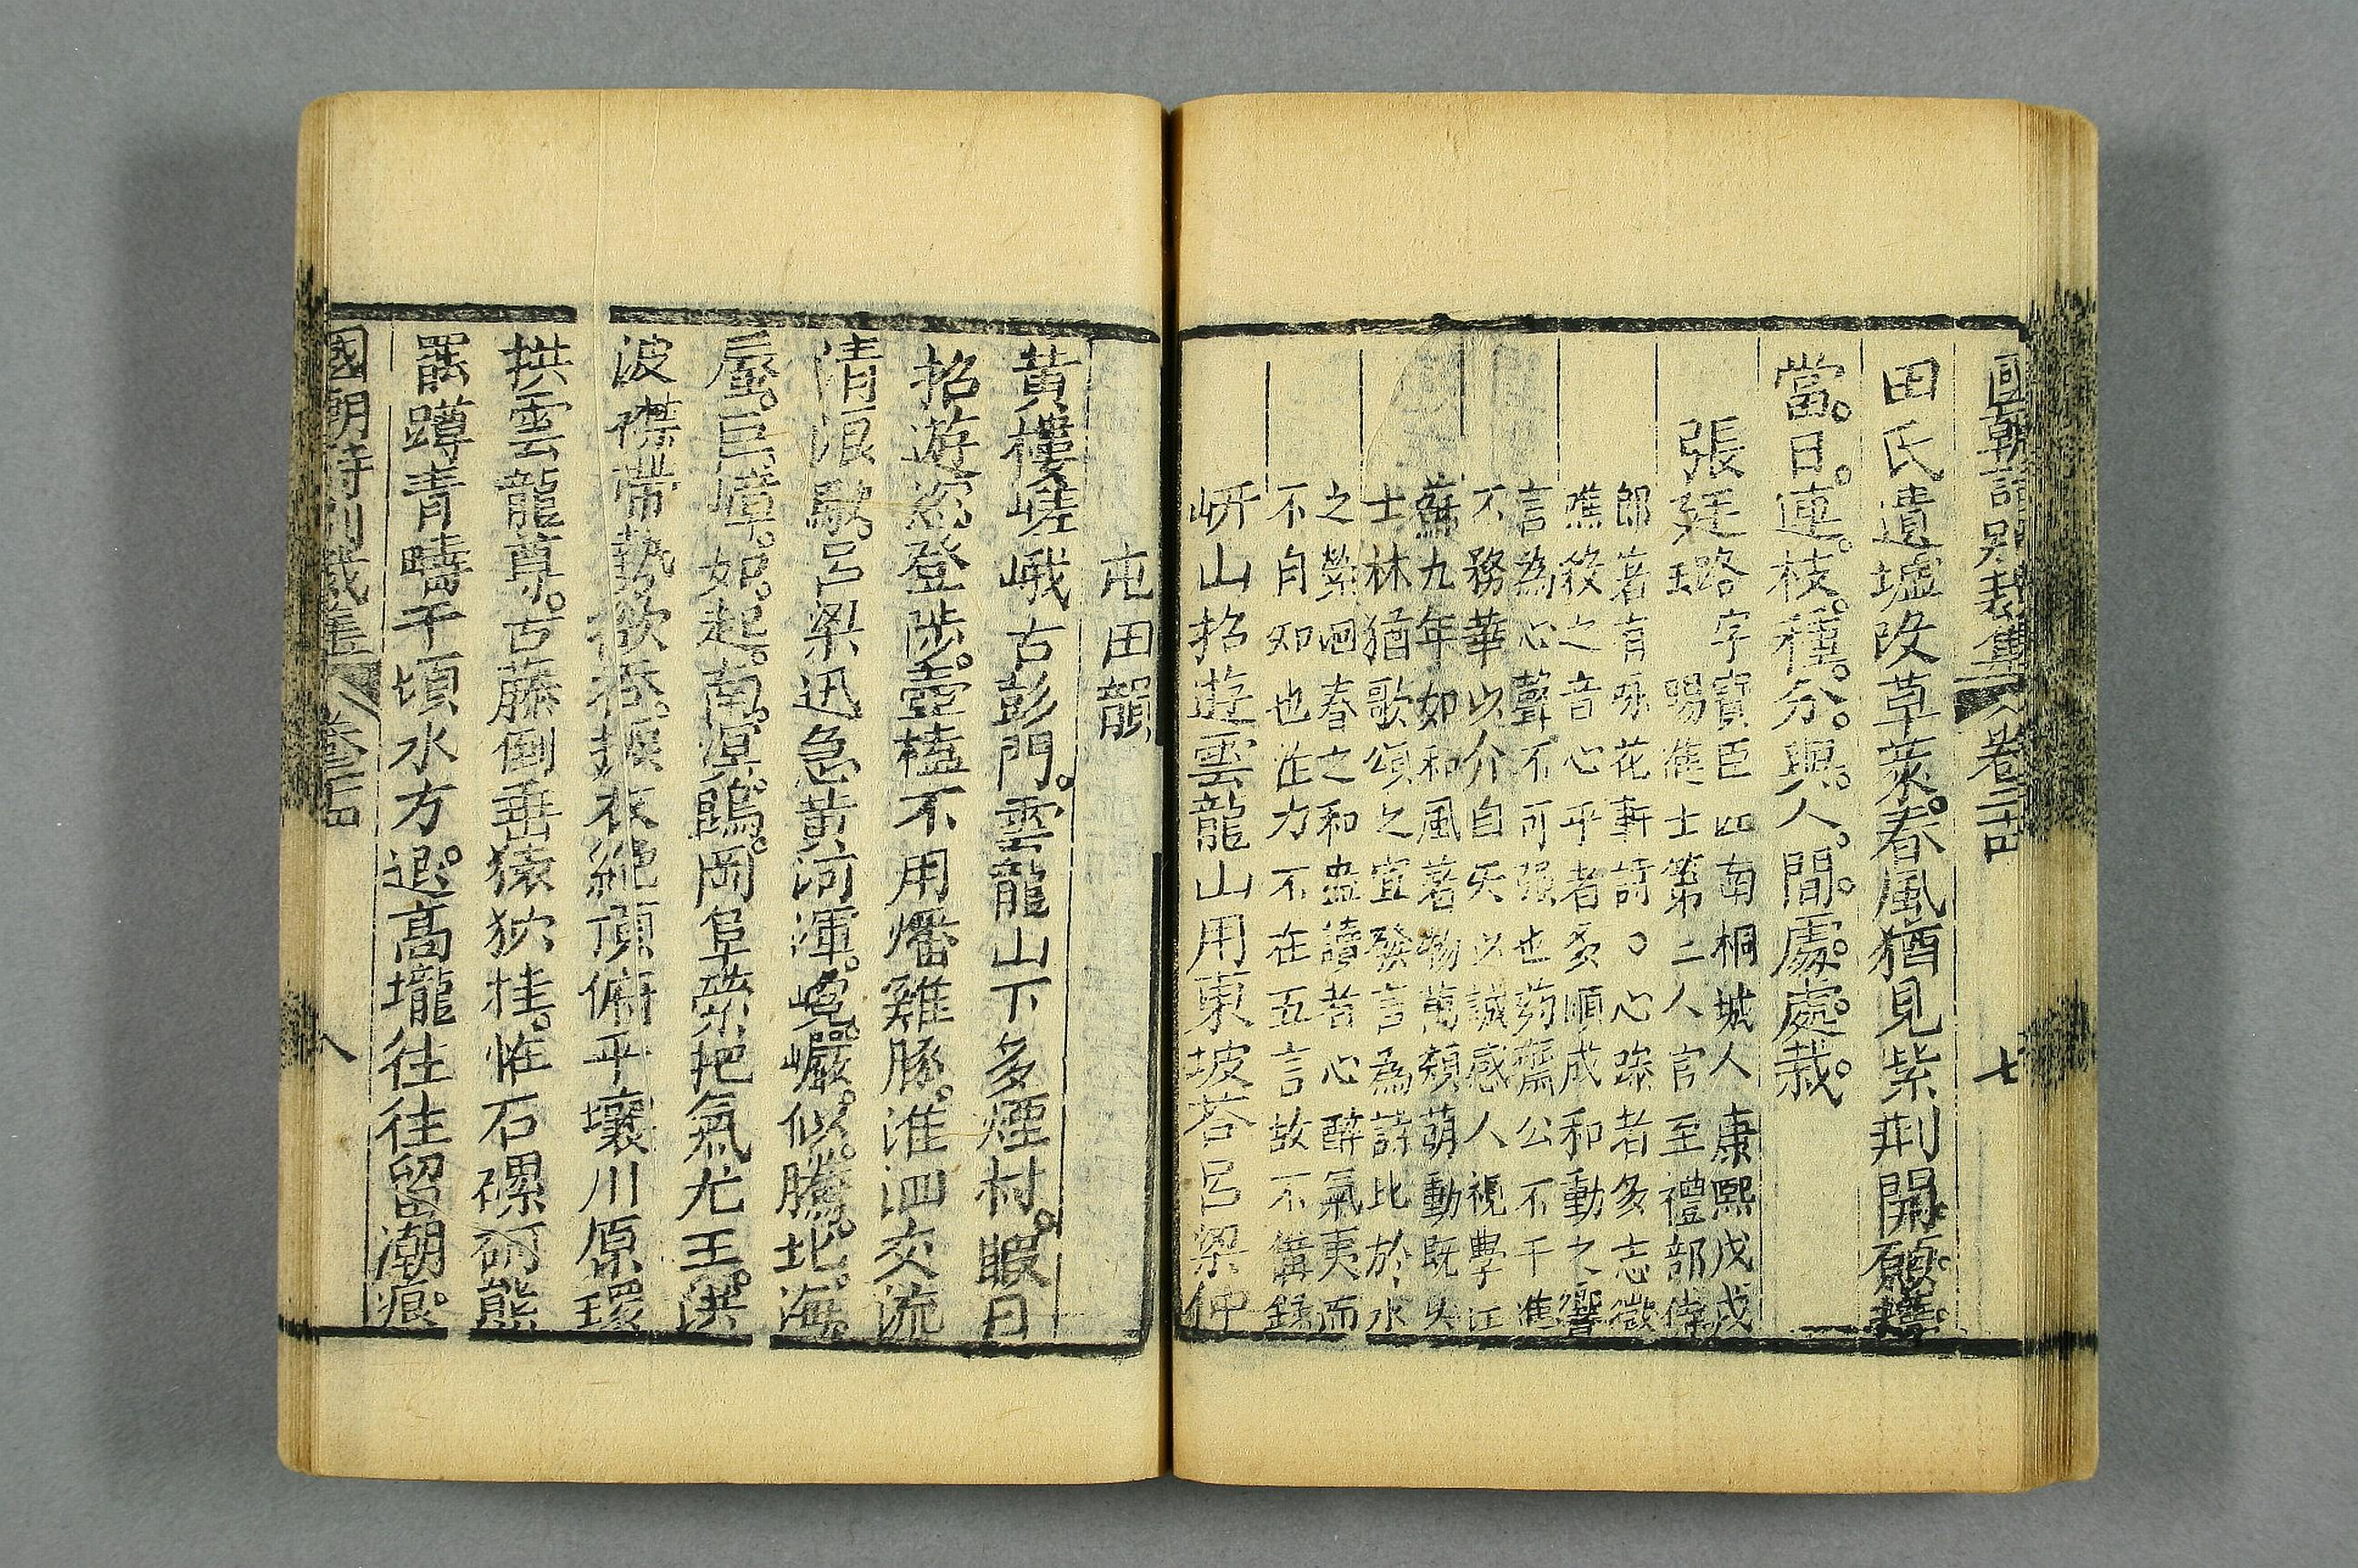 國朝詩別裁集 卷二十四 七
田氏遺墟改草萊。春風猶見紫荆開。願
當。日。連。枝。種。分。與。人。間。處。處。栽。
張廷璐字寶臣江南桐城人康熙戊戌
賜進士第二人官至禮部侍
郎著有咏花軒詩○心躁者多志微
噍殺之音心平者多順成和動之響
言為心聲不可強也葯齋公不干進
不務華以介自矢以誠感人視學江
蘇九年如和風著物萬類萌動既失
士林猶歌頌之宜發言為詩比於水
之縈洄春之和盎讀者心醉氣夷而
不自知也注力不在五言故不備錄
岍山招遊雲龍山用東坡荅呂梁仲
屯田韻
黃樓嵯峨古彭門。雲龍山下多煙村。暇日
招遊恣登陟。壺榼不用燔雞豚。淮泗交流
清浪駛。呂梁迅急黃河渾。巉。巖。似。騰。北。海。
蜃。巨。嶂。如。起。南。溟。鵾。岡阜縈抱氣尤王。洪
波襟帶勢欲吞。振衣絶頂俯平壤川原環
拱雲龍尊。古藤倒垂猿狖挂。恠石磥砢熊
羆蹲青疇千頃水方退。高壠往往留潮痕。
國朝詩別裁集 卷二十四 八